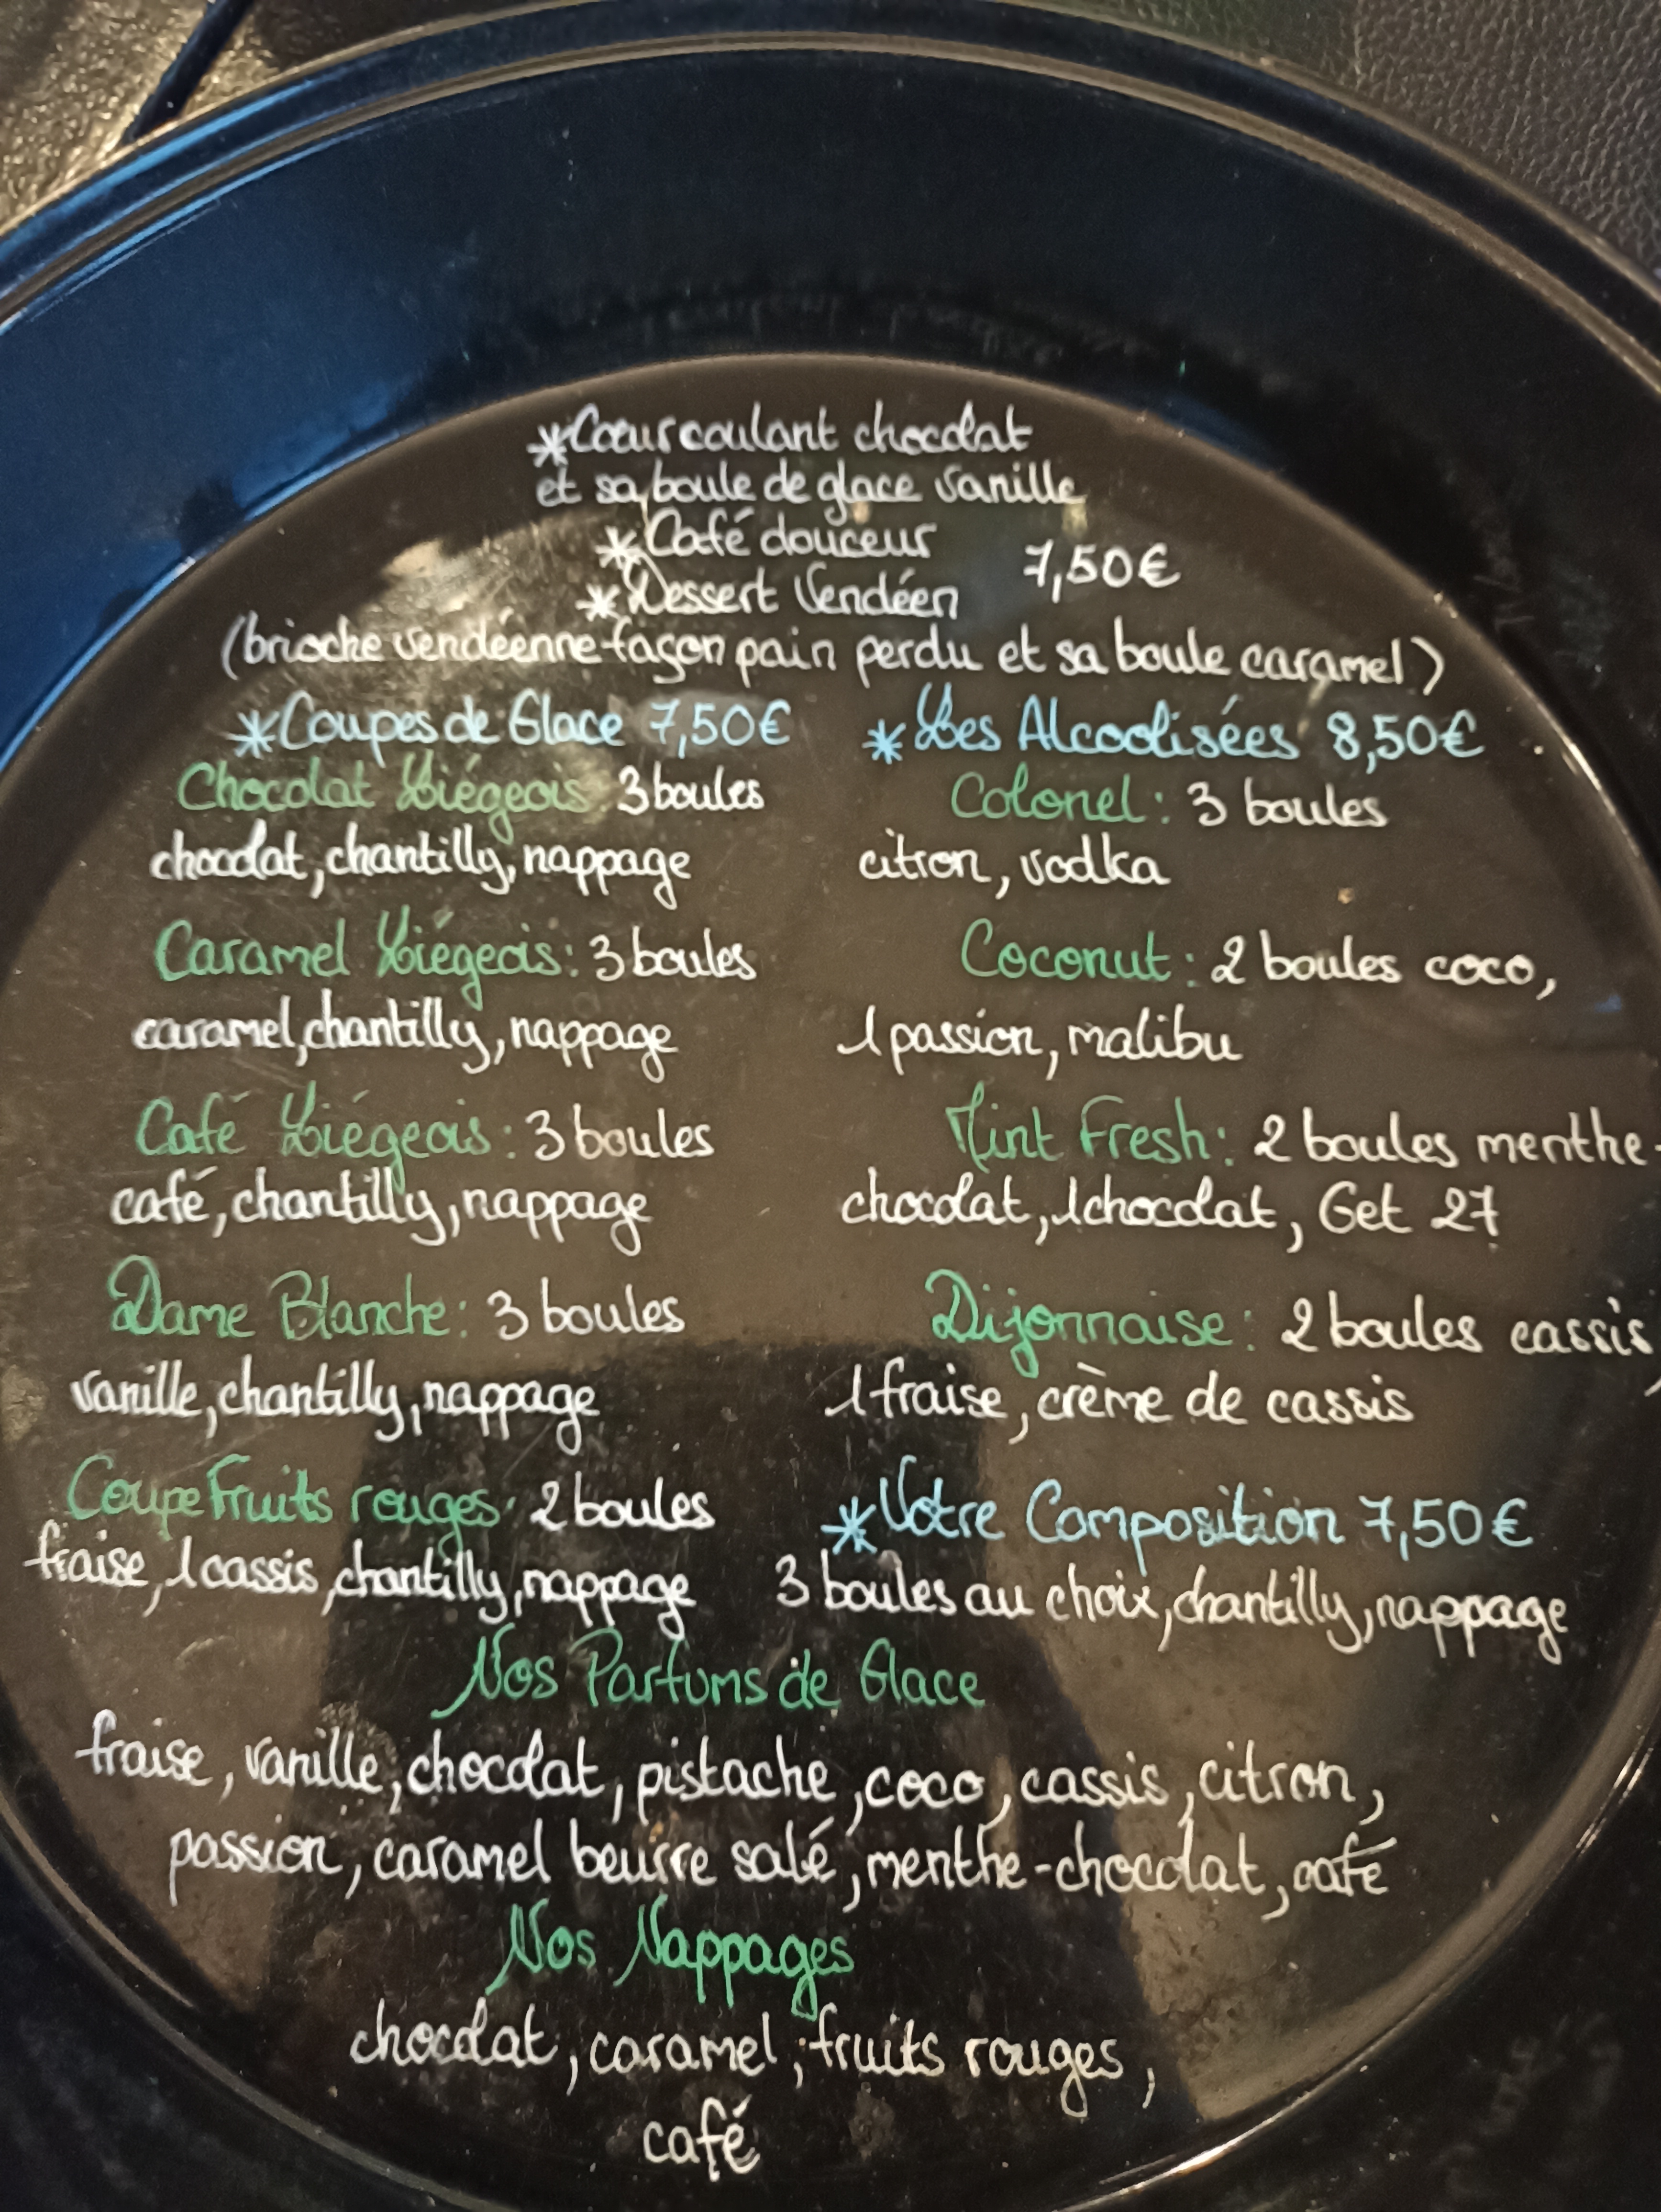 *Cœur coulant chocolat
et sa boule de glace vanille
*Café douceur
7,50€
*Dessert Vendéen
(brioche vendéenne façon pain perdu et sa boule caramel)
*Coupes de Glace 7,50€
Chocolat Liégeois 3 boules
chocolat, chantilly, nappage
Caramel Liégeois : 3 boules
caramel, chantilly, nappage
Café Liégeois : 3 boules
café, chantilly, nappage
Dame Blanche : 3 boules
vanille, chantilly, nappage
Coupe Fruits rouges : 2 boules
fraise, 1 cassis, chantilly, nappage
*Les Alcoolisées 8,50€
Colonel : 3 boules
citron, vodka
Coconut : 2 boules coco,
1 passion, malibu
Mint Fresh : 2 boules menthe-
chocolat, 1 chocolat, Get 27
Dijonnaise : 2 boules cassis,
1 fraise, crème de cassis
*Votre Composition 7,50€
3 boules au choix, chantilly, nappage
Nos Parfums de Glace
fraise, vanille, chocolat, pistache, coco, cassis, citron,
passion, caramel beurre salé, menthe-chocolat, café
Nos Nappages
chocolat, caramel, fruits rouges,
café